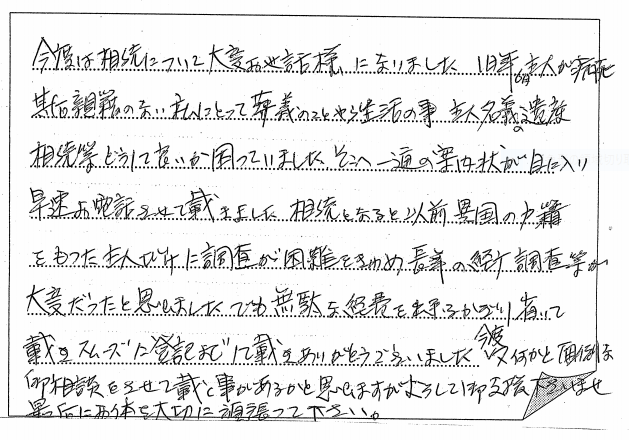 今度は相続について大変お世話様になりました 旧年6月主人が病死
其后親戚のない私にとって葬義のことやら生活の事 主人名義の遺産
相続等どうして良いか困っていました、そこへ一通の案内状が目に入り
早速お電話させて戴きました 相続となると以前異国の戸籍
をもった主人だけに調査が困難をきわめ長年の経 調査等が
大変だったと思いましたでも無駄な経費を出来るかぎり省いて
戴きスムーズに登記までして戴きありがとうございました 今後又何かと面倒な
御相談をさせて戴く事があるかと思いますがよろしく御支援下さいませ
最后にお体を大切に頑張って下さい。